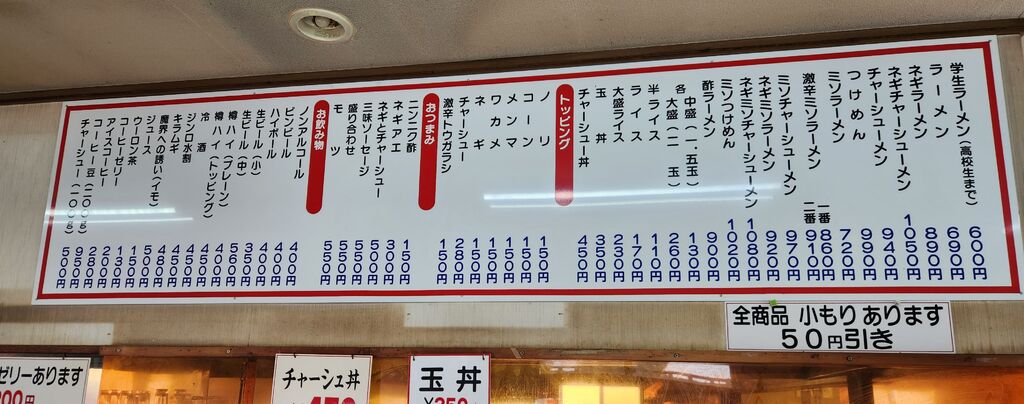 学生ラーメン(高校生まで) 600円
ラーメン 690円
ネギラーメン 890円
ネギチャーシューメン 1050円
チャーシューメン 940円
つけめん 990円
ミソラーメン 720円
激辛ミソラーメン 一番 860円
二番 910円
ミソチャーシューメン 970円
ネギミソラーメン 920円
ネギミソチャーシューメン 1080円
ミソつけめん 1020円
酢ラーメン 900円
各 中盛(一、五玉) 130円
大盛(二玉) 260円
半ライス 110円
ライス 170円
大盛ライス 230円
玉丼 350円
チャーシュー丼 450円
トッピング
ノリ 150円
コーン 150円
メンマ 150円
ワカメ 150円
ネギ 150円
チャーシュー 280円
激辛トウガラシ 150円
おつまみ
ニンニク酢 150円
ネギアエ 300円
ネギとチャーシュー 500円
三味ソーセージ 550円
盛り合わせ 550円
モツ 550円
お飲み物
ノンアルコール 400円
ビンビール
ハイボール 400円
生ビール(小) 400円
生ビール(中)
樽ハイ(プレーン)
樽ハイ(トッピング)
冷酒
ジンロ水割 450円
キラムギ 450円
魔界への誘い(イモ) 480円
ジュース
ウーロン茶 150円
コーヒーゼリー
アイスコーヒー
コーヒー豆(二〇〇g) 950円
チャーシュー(一〇〇g) 500円
全商品 小もりあります
50円引き
ゼリーあります
200円
チャーシュ丼
玉丼
¥350